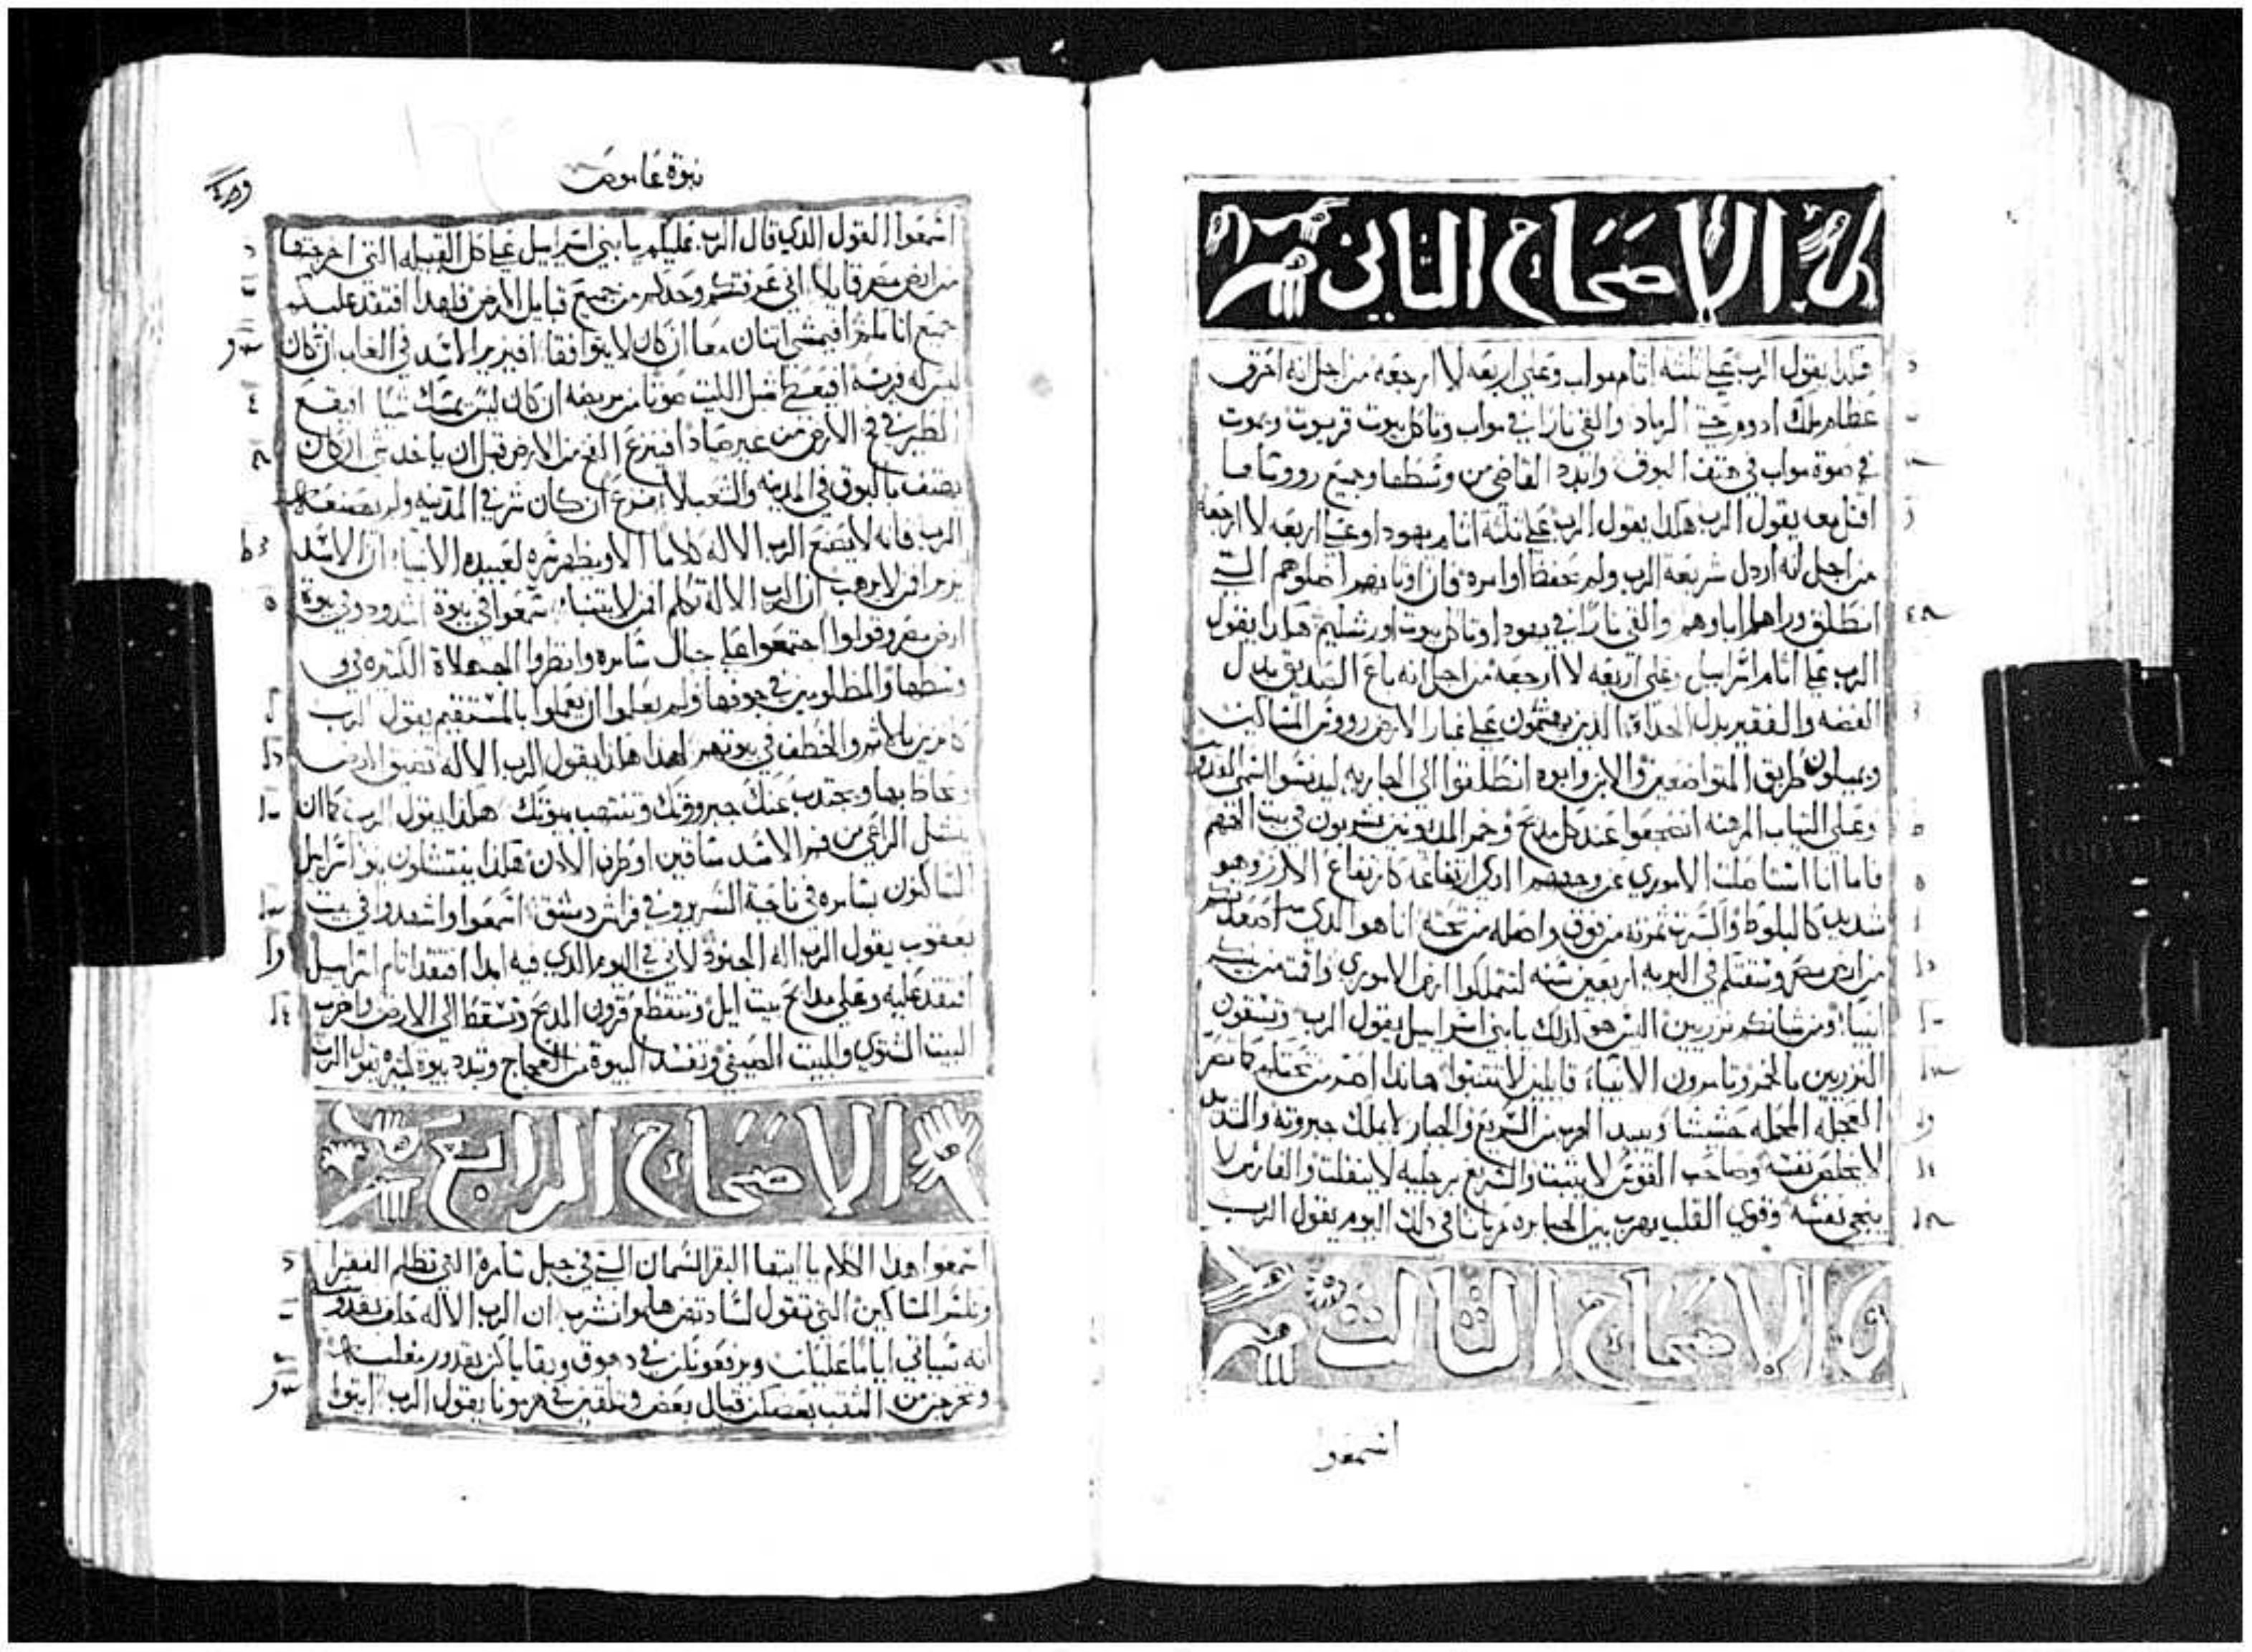 الاصحاح الثاني
هكذا يقول الرب على ثلثه اثام مواب وعلى اربعه لا ارجعه من اجل انه احرق
عظام ملك ادوم حتى الرماد والقي نارا في مواب وتاكل بيوت قريوت ويموت
في صوة مواب في هتف البوق وابدد القاضي من وسطها وجميع رووساها
اقتل معه يقول الرب هكذا يقول الرب على ثلثه اثام يهودا وعلى اربعه لا ارجعه
من اجل انه اردل شريعة الرب ولم يحفظ اوامره فان اوثانهم اضلوهم التي
انطلق وراهم اباوهم والقي نارا في يهودا وتاكل بيوت اورشليم هكذا يقول
الرب على اثام اسراييل وعلى اربعه لا ارجعه من اجل انه باع الصديق بدل
الفضه والفقير بدل الحداء الذين على غبار الارض رووس المساكين
ويميلون طريق المتواضعين والابن وابوه انطلقوا الى الجاريه ليدنسوا اسمي القدوس
وعلى الثياب المرهنه انضجعوا عند كل مدبح وخمر المديونين يشربون في بيت الههم
فاما انا استاصلت الاموري عن وجههم الدي ارتفاعه كارتفاع الارز وهو
شديد كالبلوط وكسرت ثمرته من فوق واصله من تحته انا هو الدي اصعدتكم
من ارض مصر وسقتكم في البريه اربعين سنه لتتملكوا ارض الاموري واقمت من بنيكم
انبياء ومن شبانكم نزريين اليس هو ذلك يا بني اسراييل يقول الرب وتسقون
النزريين بالخمر وتامرون الانبياء قايلين لا تتنبوا هانذا اصر من تحتكم كما تصر
العجله المحمله حشيشا ويبيد الهرب من السريع والجبار لا يملك جبروته والشديد
لا يخلص نفسه وصاحب القوس لا يثبت والسريع برجليه لا ينفلت والفارس لا
ينجي نفسه وقوي القلب يهرب بين الجبابره عريانا في ذلك اليوم يقول الرب
الاصحاح الثالث
اسمعوا
نبوة عاموص
اسمعوا القول الدي قال الرب عليكم يا بني اسراييل على كل القبيله التي اخرجتها
من ارض مصر قايلا اني عرفتكم وحدكم من جميع قبايل الارض فلهدا افتقد عليكم
جميع اثامكم افيمشي اثنان معا ان كان لا يتوافقا افيزير الاسد في الغاب ان كان
ليس له فريسه افيعطي شبل الليث صوتا من مربضه ان كان ليس يمسك شيا افيقع
الطير في فخ الارض من غير صياد افينزع الفخ من الارض قبل ان ياخد شي ان كان
يهتف بالبوق في المدينه والشعب لا يفزع ان كان شر في المدينه ولم يصنعه
الرب فانه لا يصنع الرب الاله كلاما الا ويظهر سره لعبيده الانبياء ان الاسد
يزير افمن لا يرهب ان الرب الاله تكلم افمن لا يتنبا سمعوا في بيوة اشدود وفي بيوة
ارض مصر وقولوا اجتمعوا على جبال سامره وانظروا الجهلاة الكثيره في
وسطها والمظلومين في جوفها ولم يعلموا ان يعملوا بالمستقيم يقول الرب
كانزين بالاثم والخطف في بيوتهم لهدا هكذا يقول الرب الاله تضيق الارض
ويحاط بها ويجتدب عنك جبروتك وتنتهب بيوتك هكذا يقول الرب كما ان
ينشل الراعي من فم الاسد ساقين او طرف الادن هكذا ينتشلون بنو اسراييل
الساكنون بسامره في ناحية السرير وفي فراش دمشق اسمعوا واشهدوا في بيت
يعقوب يقول الرب اله الجنود لاني في اليوم الدي فيه ابدا افتقد اثام اسراييل
افتقد عليه وعلى مدابح بيت ايل وتنقطع قرون المدبح وتسقط الى الارض واضرب
البيت الشتوي والبيت الصيفي وتفسد البيوة من العجاج وتبدد بيوة كثيره يقول الرب
الاصحاح الرابع
اسمعوا هدا الكلام يا ايتها البقر السمان التي في جبل سامره التي تظلم الفقرا
وتكسر المساكين التي تقول لسادتهن هلموا نشرب ان الرب الاله حلف بقدوسيته
انه سياتي اياما عليكن ويرفعونكن في دهوق وبقاياكن بقدور مغليه
وتخرجن من الثقب بعضكن قبال بعض وتلقين في هرمونا يقول الرب ايتوا